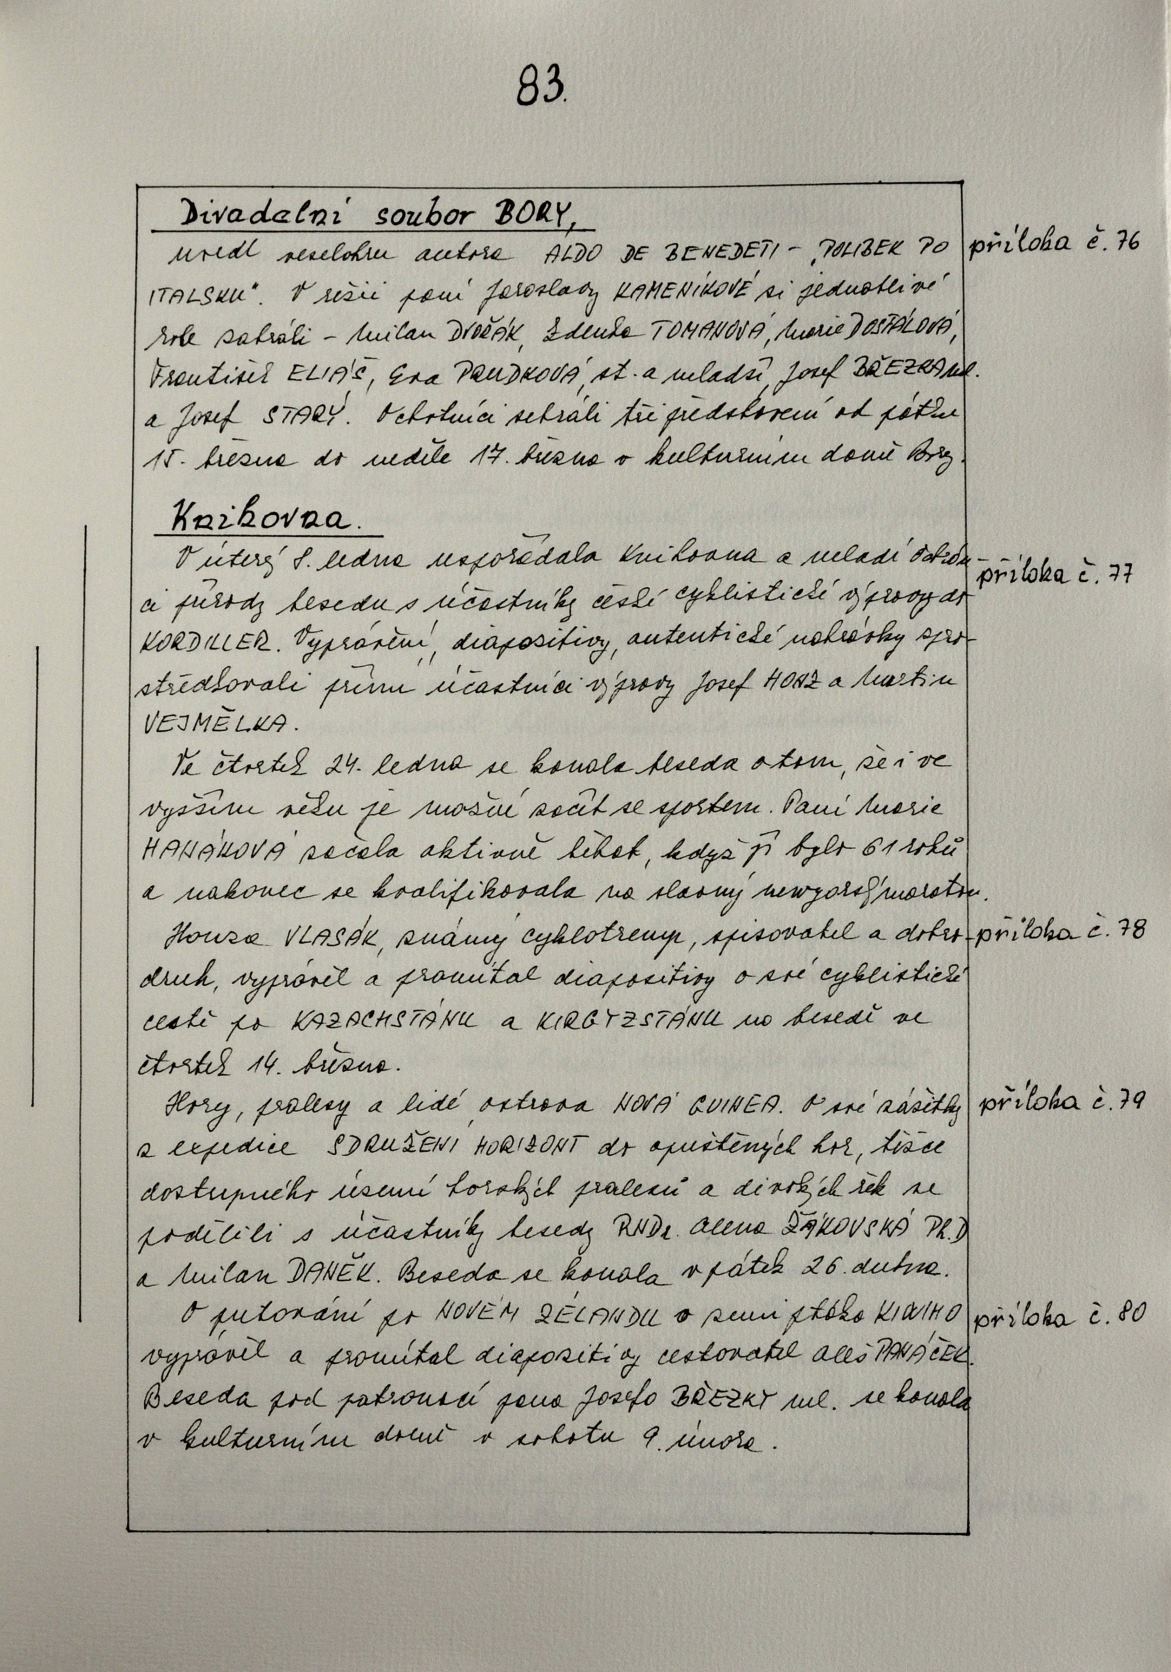 83.
Divadelní soubor BORY,
uvedl veselohru autora ALDO DE BENEDETI - „POLIBEK PO příloha č. 76
ITALSKU“. V režii paní Jaroslavy KAMENÍKOVÉ si jednotlivé
role zahráli - Milan DVOŘÁK, Zdenka TOMANOVÁ, Marie DOSTÁLOVÁ,
František ELIÁŠ, Eva st. a mladší, Josef BŘEZKA ml.
a Josef STARÝ. Ochotníci sehráli tři představení od pátku
15. března do neděle 17. března v kulturním domě Bory.
Knihovna.
V úterý 8. ledna uspořádala knihovna a mladí ochrán- příloha č. 77
ci přírody besedu s účastníky české cyklistické výpravy do
KORDILLER. Vyprávění, diapozitivy, autentické nahrávky zpro-
středkovali přímí účastníci výpravy Josef HONZ a Martin
VEJMĚLKA.
Ve čtvrtek 24. ledna se konala beseda o tom, že i ve
vyšším věku je možné začít se sportem. Paní Marie
HANÁKOVÁ začala aktivně běhat, když jí bylo 61 roků
a nakonec se kvalifikovala na slavný newyorský maraton.
Honza VLASÁK, známý cyklotremp, spisovatel a dobro- příloha č. 78
druh, vyprávěl a promítal diapozitivy o své cyklistické
cestě po KAZACHSTÁNU a KIRGYZSTÁNU na besedě ve
čtvrtek 14. března.
Hory, pralesy a lidé ostrova NOVÁ GUINEA. O své zážitky příloha č. 79
z expedice SDRUŽENÍ HORIZONT do opuštěných hor, těžce
dostupného území horských pralesů a divokých řek se
podělili s účastníky besedy RNDr. Alena ŽÁKOVSKÁ Ph.D
a Milan DANĚK. Beseda se konala v pátek 26. dubna.
O putování po NOVÉM ZÉLANDU v zemi ptáka KIWIHO příloha č. 80
vyprávěl a promítal diapozitivy cestovatel Aleš PANÁČEK.
Beseda pod patronací pana Josefa BŘEZKY ml. se konala
v kulturním domě v sobotu 9. února.